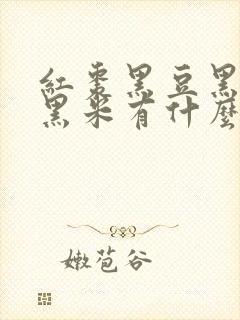 紅棗黑豆黑
黑米有什麼
嫩苞谷